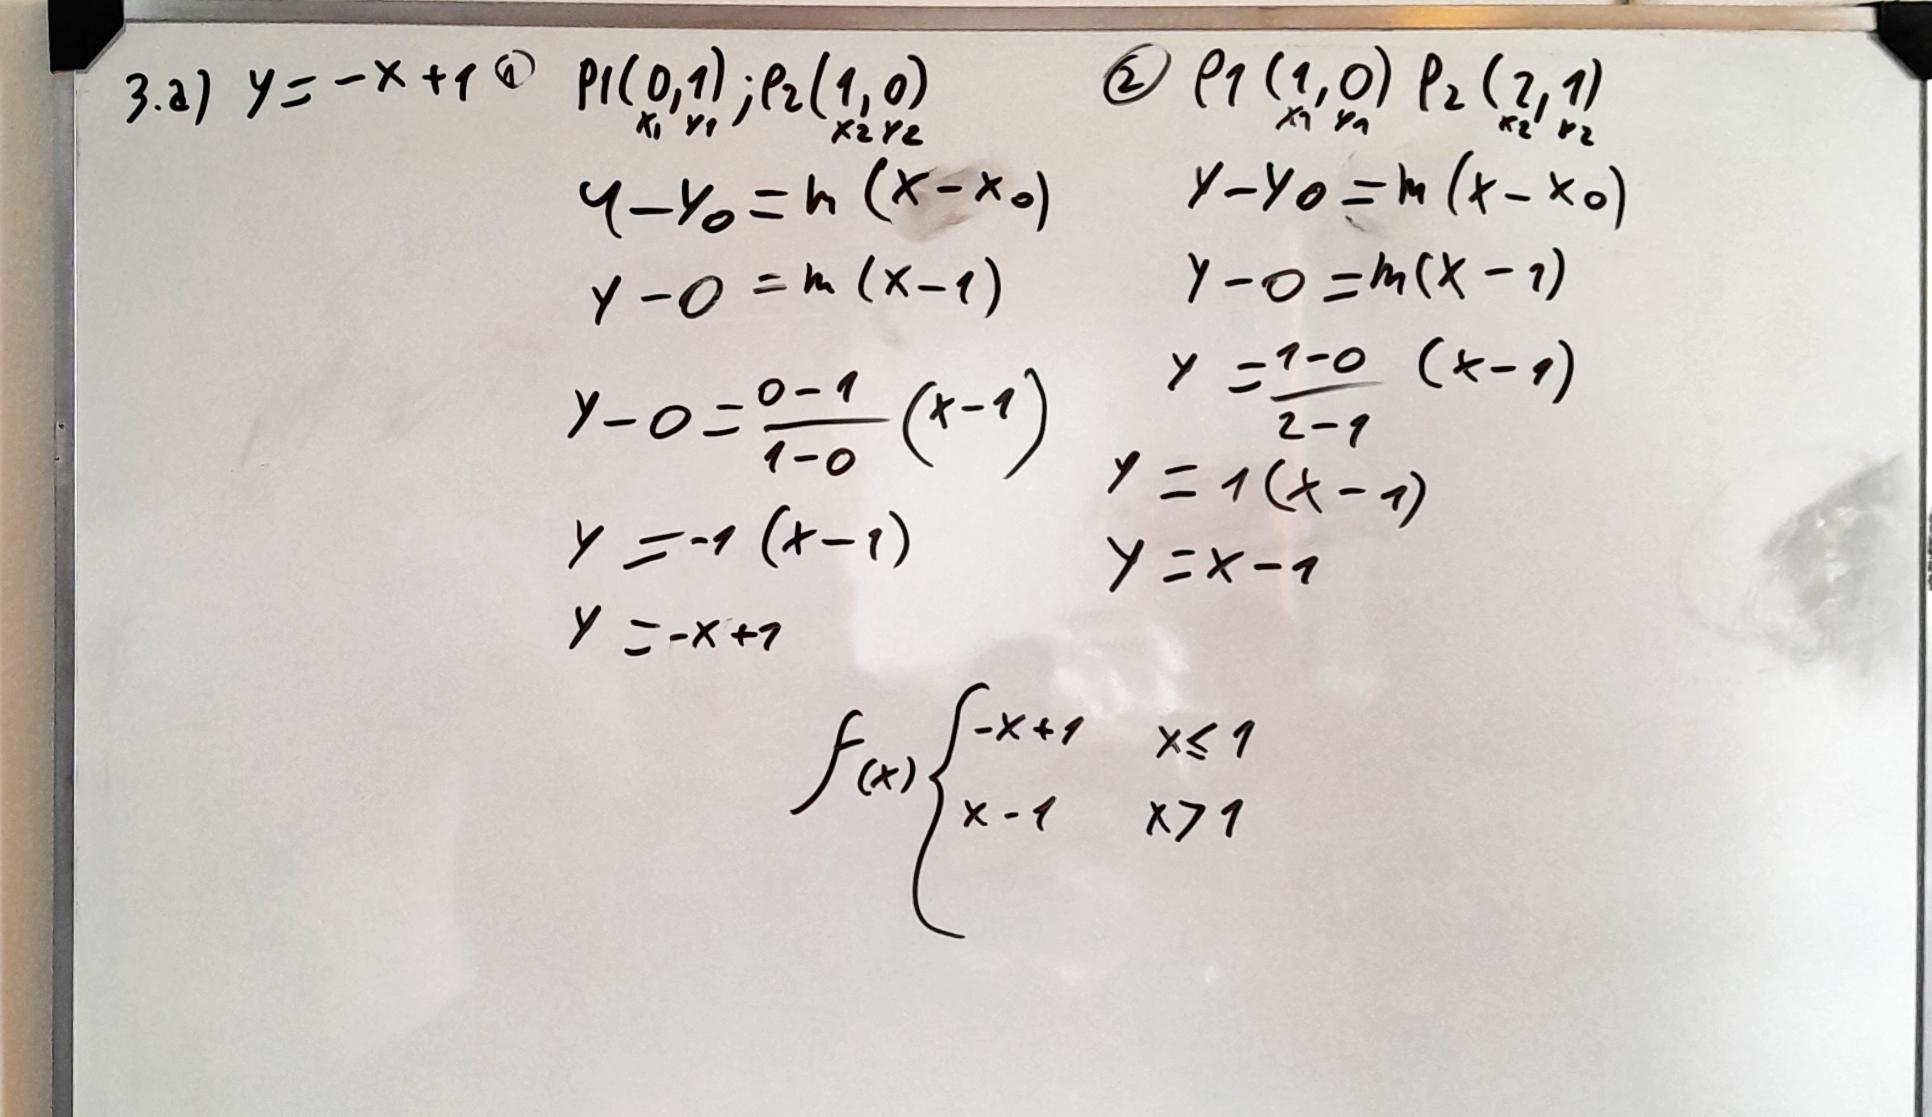 3.a) y = -x + 1 ① P1(0,1); P2(1,0)
x1 y1 x2 y2
y - y0 = m (x - x0)
y - 0 = m (x - 1)
y - 0 = 0-1/1-0 (x - 1)
y = -1 (x - 1)
y = -x + 1
② P1 (1,0) P2 (2,1)
x1 y1 x2 y2
y - y0 = m (x - x0)
y - 0 = m (x - 1)
y = 1-0/2-1 (x - 1)
y = 1 (x - 1)
y = x - 1
f(x) { -x + 1 x ≤ 1
x - 1 x > 1